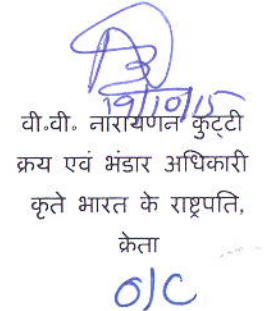 19/10/15
वी॰वी॰ नारायणन कुट्टी
क्रय एवं भंडार अधिकारी
कृते भारत के राष्ट्रपति,
क्रेता
O/C